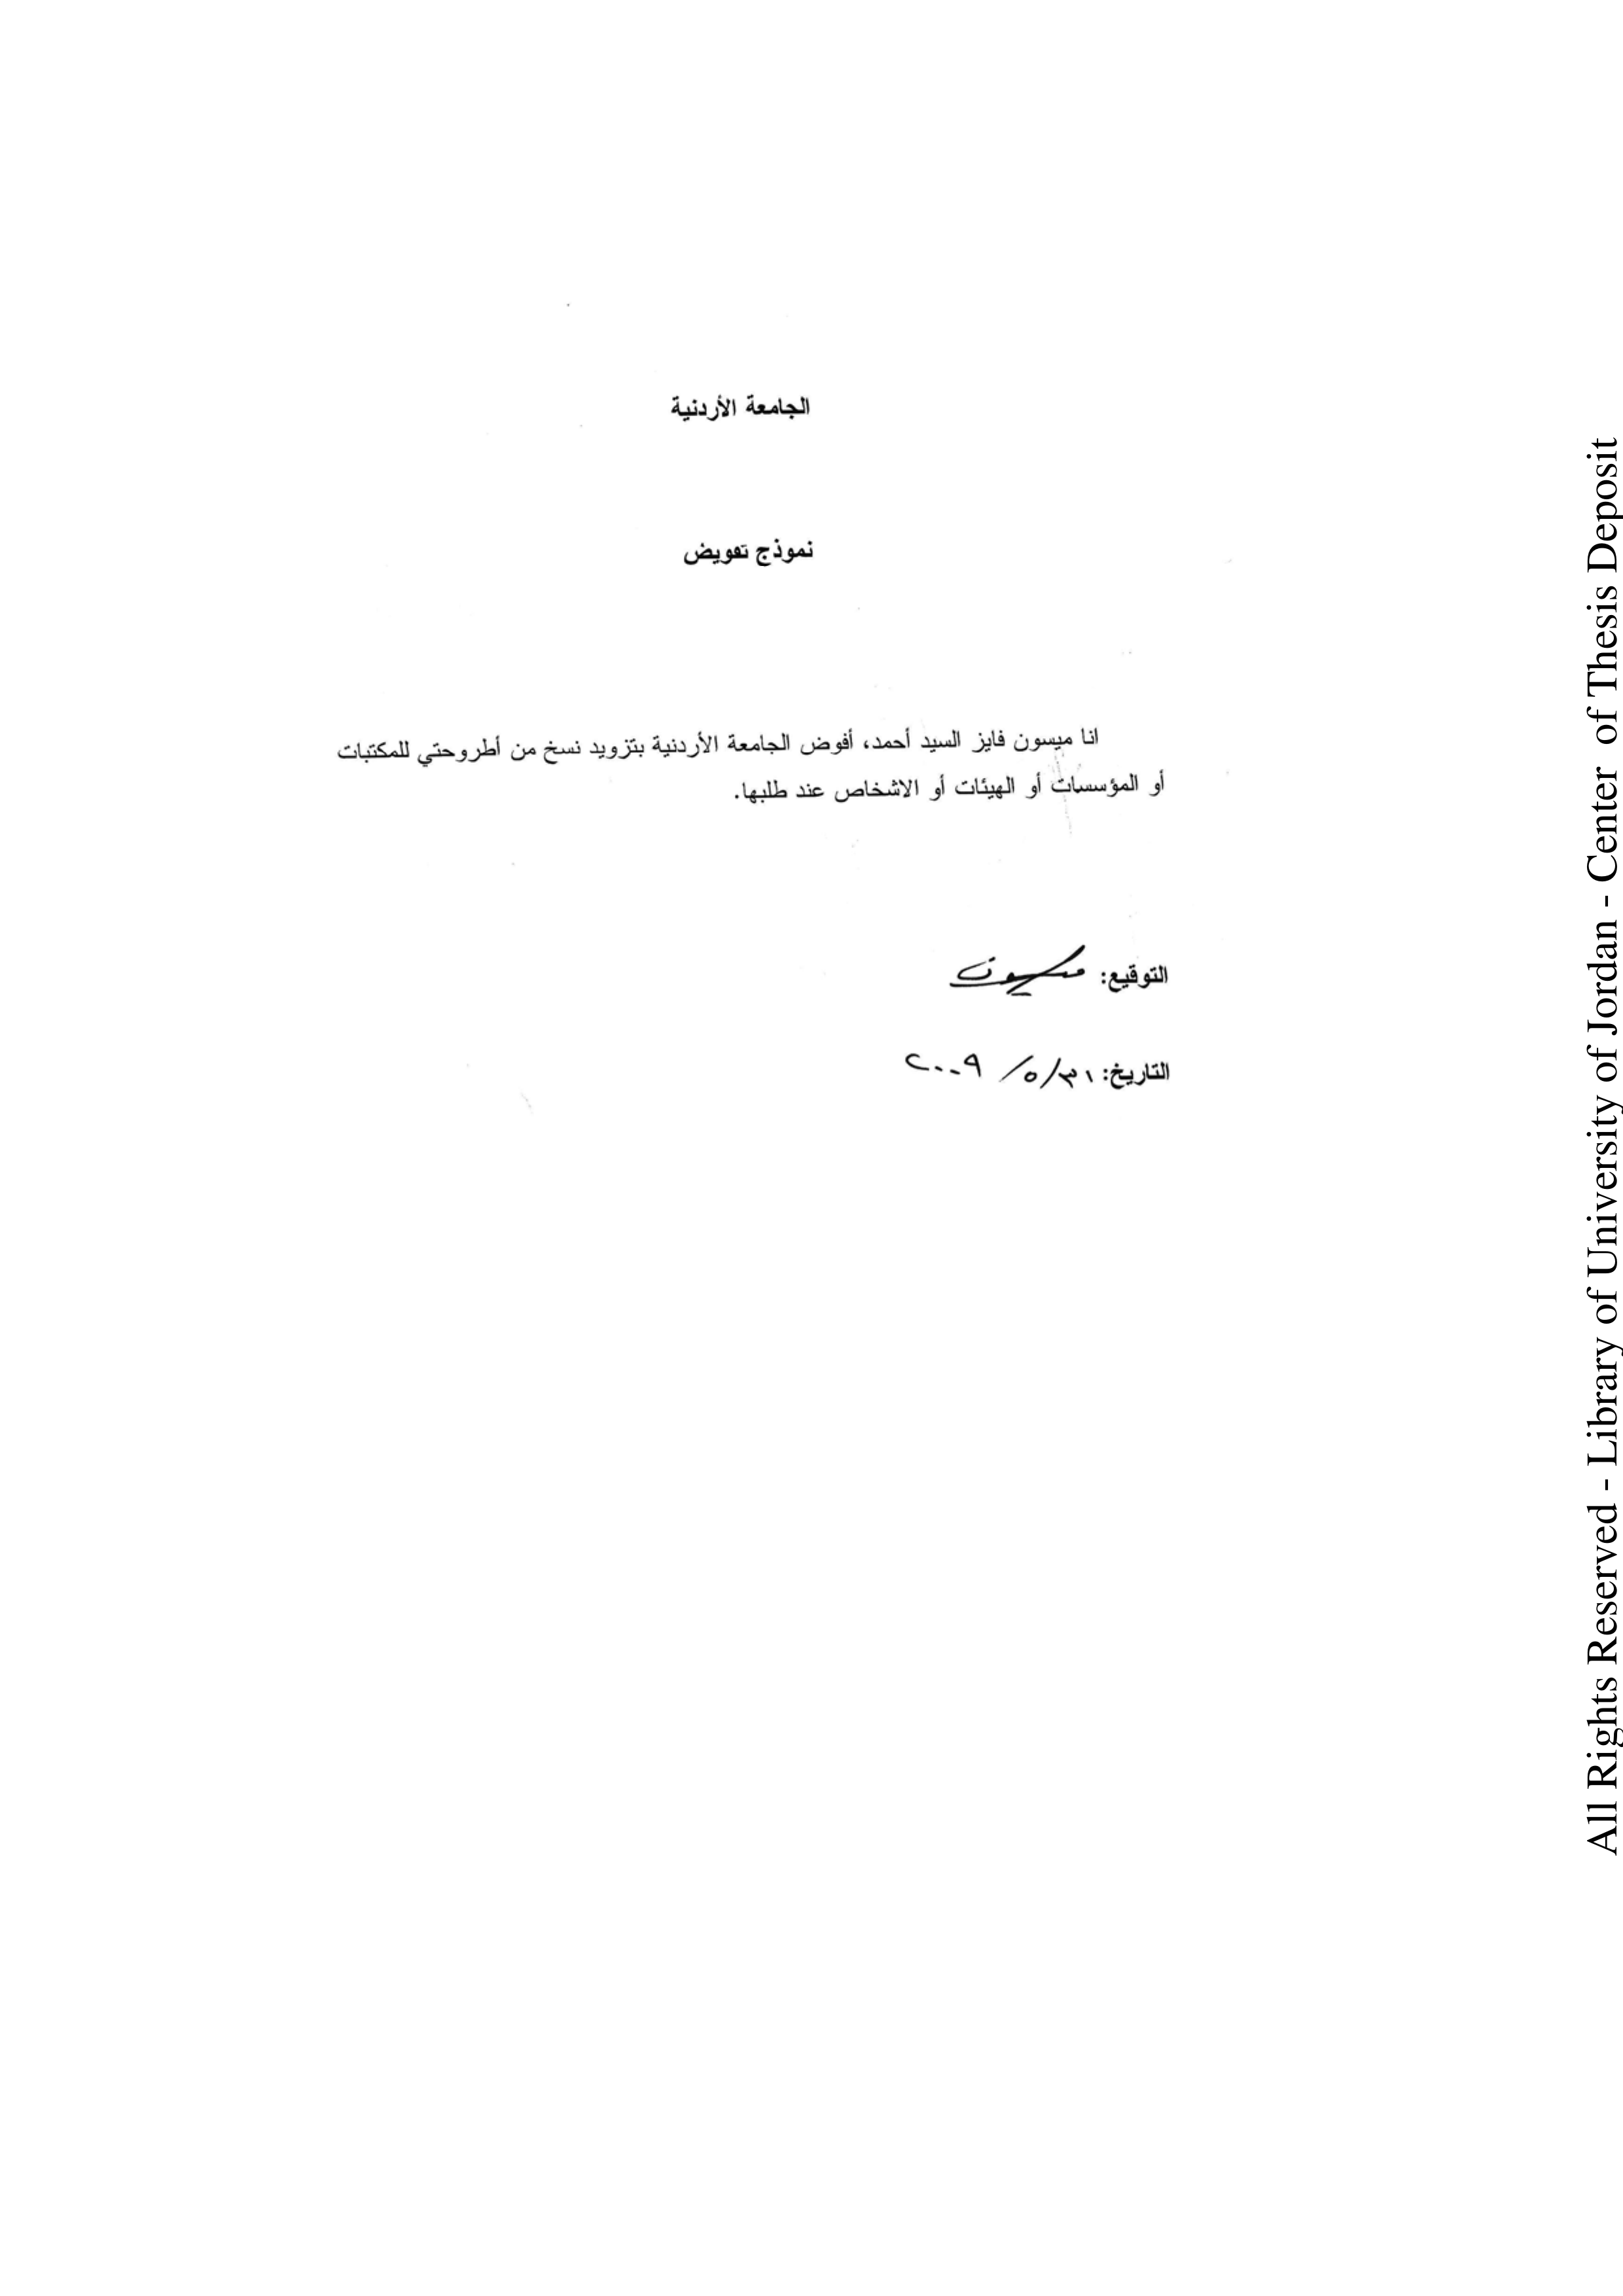 الجامعة الأردنية
نموذج تفويض
انا ميسون فايز السيد أحمد، أفوض الجامعة الأردنية بتزويد نسخ من أطروحتي للمكتبات
أو المؤسسات أو الهيئات أو الاشخاص عند طلبها.
التوقيع: ميسون
التاريخ: ٣١/٥/ ٢٠٠٩
All Rights Reserved - Library of University of Jordan - Center of Thesis Deposit